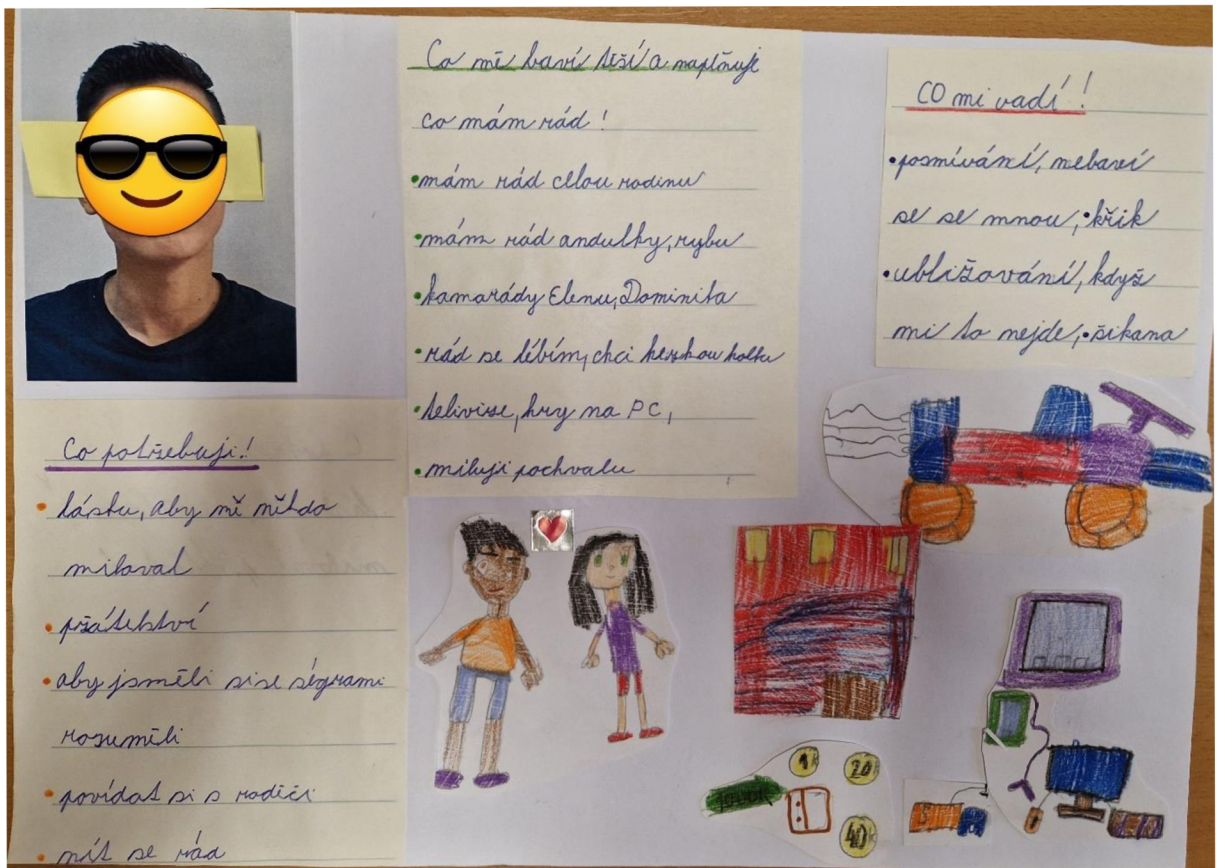 Co mě baví těší a naplňuje
co mám rád !
•mám rád celou rodinu
•mám rád andulky, rybu
•kamarády Elenu, Dominika
•rád se líbím, chci hezkou holku
•telivise, hry na PC,
•miluji pochvalu
CO mi vadí !
•posmívání, nebaví
se se mnou, •křik
•ubližování, když
mi to nejde, •šikana
Co potřebuji!
•lásku, aby mě někdo
miloval
•přátelství
•aby jsměli si se ségrami
rozuměli
•povídat si s rodiči
•mít se rád
1k
20k
40k